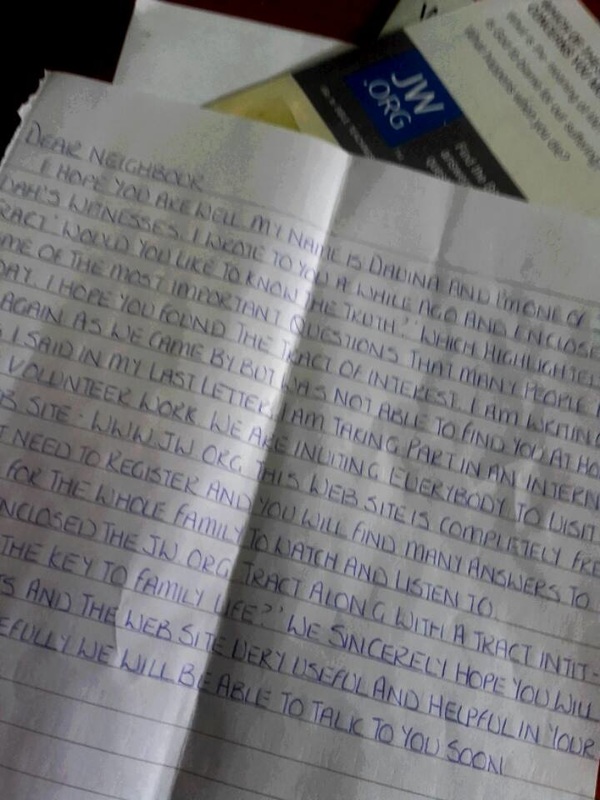 DEAR NEIGHBOUR
I HOPE YOU ARE WELL MY NAME IS DADINA AND I'M ONE OF
WITNESSES. I WROTE TO YOU A WHILE AGO AND ENCLOSE
'WOULD YOU LIKE TO KNOW THE TRUTH?' WHICH HIGHLIGHTE
OF THE MOST IMPORTANT QUESTIONS THAT MANY PEOPLE
DAY. I HOPE YOU FOUND THE TRACT OF INTEREST. I AM WRITING
AGAIN AS WE CAME BY BUT WAS NOT ABLE TO FIND YOU AT HO
I SAID IN MY LAST LETTER I AM TAKING PART IN AN INTERN
VOLUNTEER WORK WE ARE INVITING EVERYBODY TO VISIT
SITE: WWW.JW.ORG THIS WEB SITE IS COMPLETELY FRE
NEED TO REGISTER AND YOU WILL FIND MANY ANSWERS TO
FOR THE WHOLE FAMILY TO WATCH AND LISTEN TO.
NCLOSED THE JW.ORG TRACT ALONG WITH A TRACT INTIT-
THE KEY TO FAMILY LIFE?' WE SINCERELY HOPE YOU WILL
AND THE WEB SITE VERY USEFUL AND HELPFUL IN YOUR
EFULLY WE WILL BE ABLE TO TALK TO YOU SOON
JW
.ORG
What happens when you die?